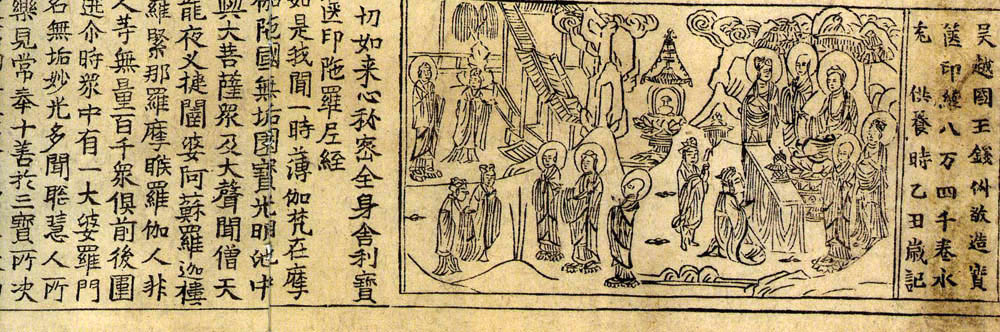 吴越國王錢俶敬造寳
篋印經八万四千卷永
充供養時乙丑歲記
切如来心祕密全身舍利寳
篋印陁羅尼經
如是我聞一時薄伽梵在摩
伽陁國無垢園寳光明池中
與大菩薩衆及大聲聞僧天
龍夜叉揵闥婆阿蘇羅迦樓
羅緊那羅摩睺羅伽人非
人等無量百千衆俱前後圍
遶尒時衆中有一大婆羅門
名無垢妙光多聞聡慧人所
樂見常奉十善於三寳所决